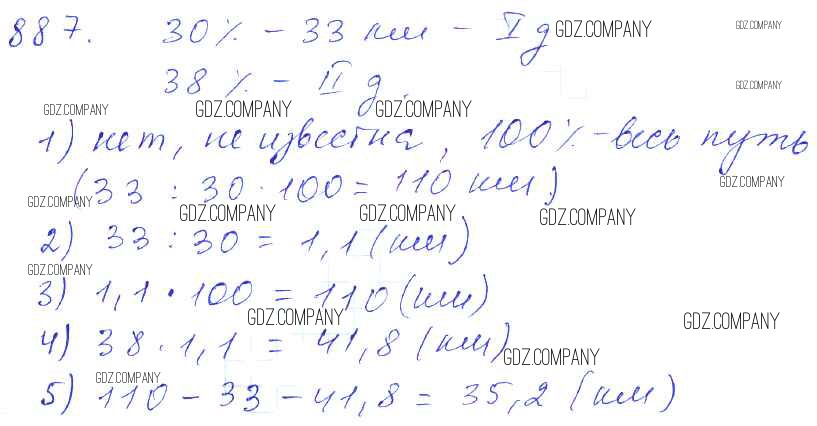 887. 30% - 33 км - I д GDZ.COMPANY GDZ.COMPANY
38% - II д. GDZ.COMPANY
GDZ.COMPANY GDZ.COMPANY GDZ.COMPANY
1) нет, не известна, 100% - весь путь
(33 : 30 · 100 = 110 км)
GDZ.COMPANY GDZ.COMPANY GDZ.COMPANY GDZ.COMPANY GDZ.COMPANY
2) 33 : 30 = 1,1 (км)
GDZ.COMPANY
3) 1,1 · 100 = 110 (км)
GDZ.COMPANY GDZ.COMPANY
4) 38 · 1,1 = 41,8 (км)
GDZ.COMPANY GDZ.COMPANY
5) 110 - 33 - 41,8 = 35,2 (км)